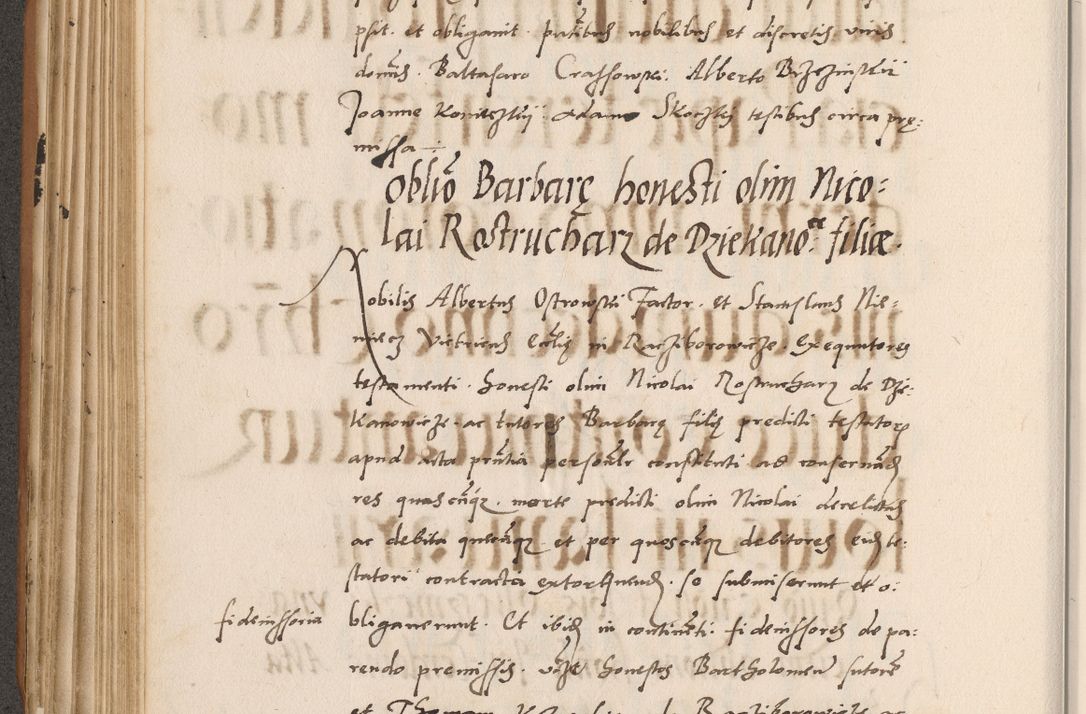 psit. et obligavit. pñtibus nobilibus et discretis viris
domis. Baltasaro Crassowski. Alberto Brzezinskii
Joanne Konieczkij. Adamo Skoczky testibus circa prę:
missa
Oblio Barbarę honesti olim Nico:
lai Rostrucharz de Dziekano.ce filiæ.
Nobilis Albertus Ostrowskii Factor. et Stanislaus Nie:
miecz Vitricus Ecclię in Racziborowicze. Exequutores
testamenti. honesti olim Nicolai Rostrucharz de Dzie:
kanowicze. ac tutores Barbarę filię predicti testatoris
apud acta pñtia personalr constituti ad conservandas
res quascunque. morte predicti olim Nicolai derelictas
ac debita quecunque et per quoscunque debitores eidem te:
statori contracta extorquenda. se submiserunt et o:
fideiussoria bligaverunt. Et ibidem in continenti. fideiussores de pa:
rendo premissis. honestos Bartholomeum sutorem
et Thomam de Racziborowicze ac